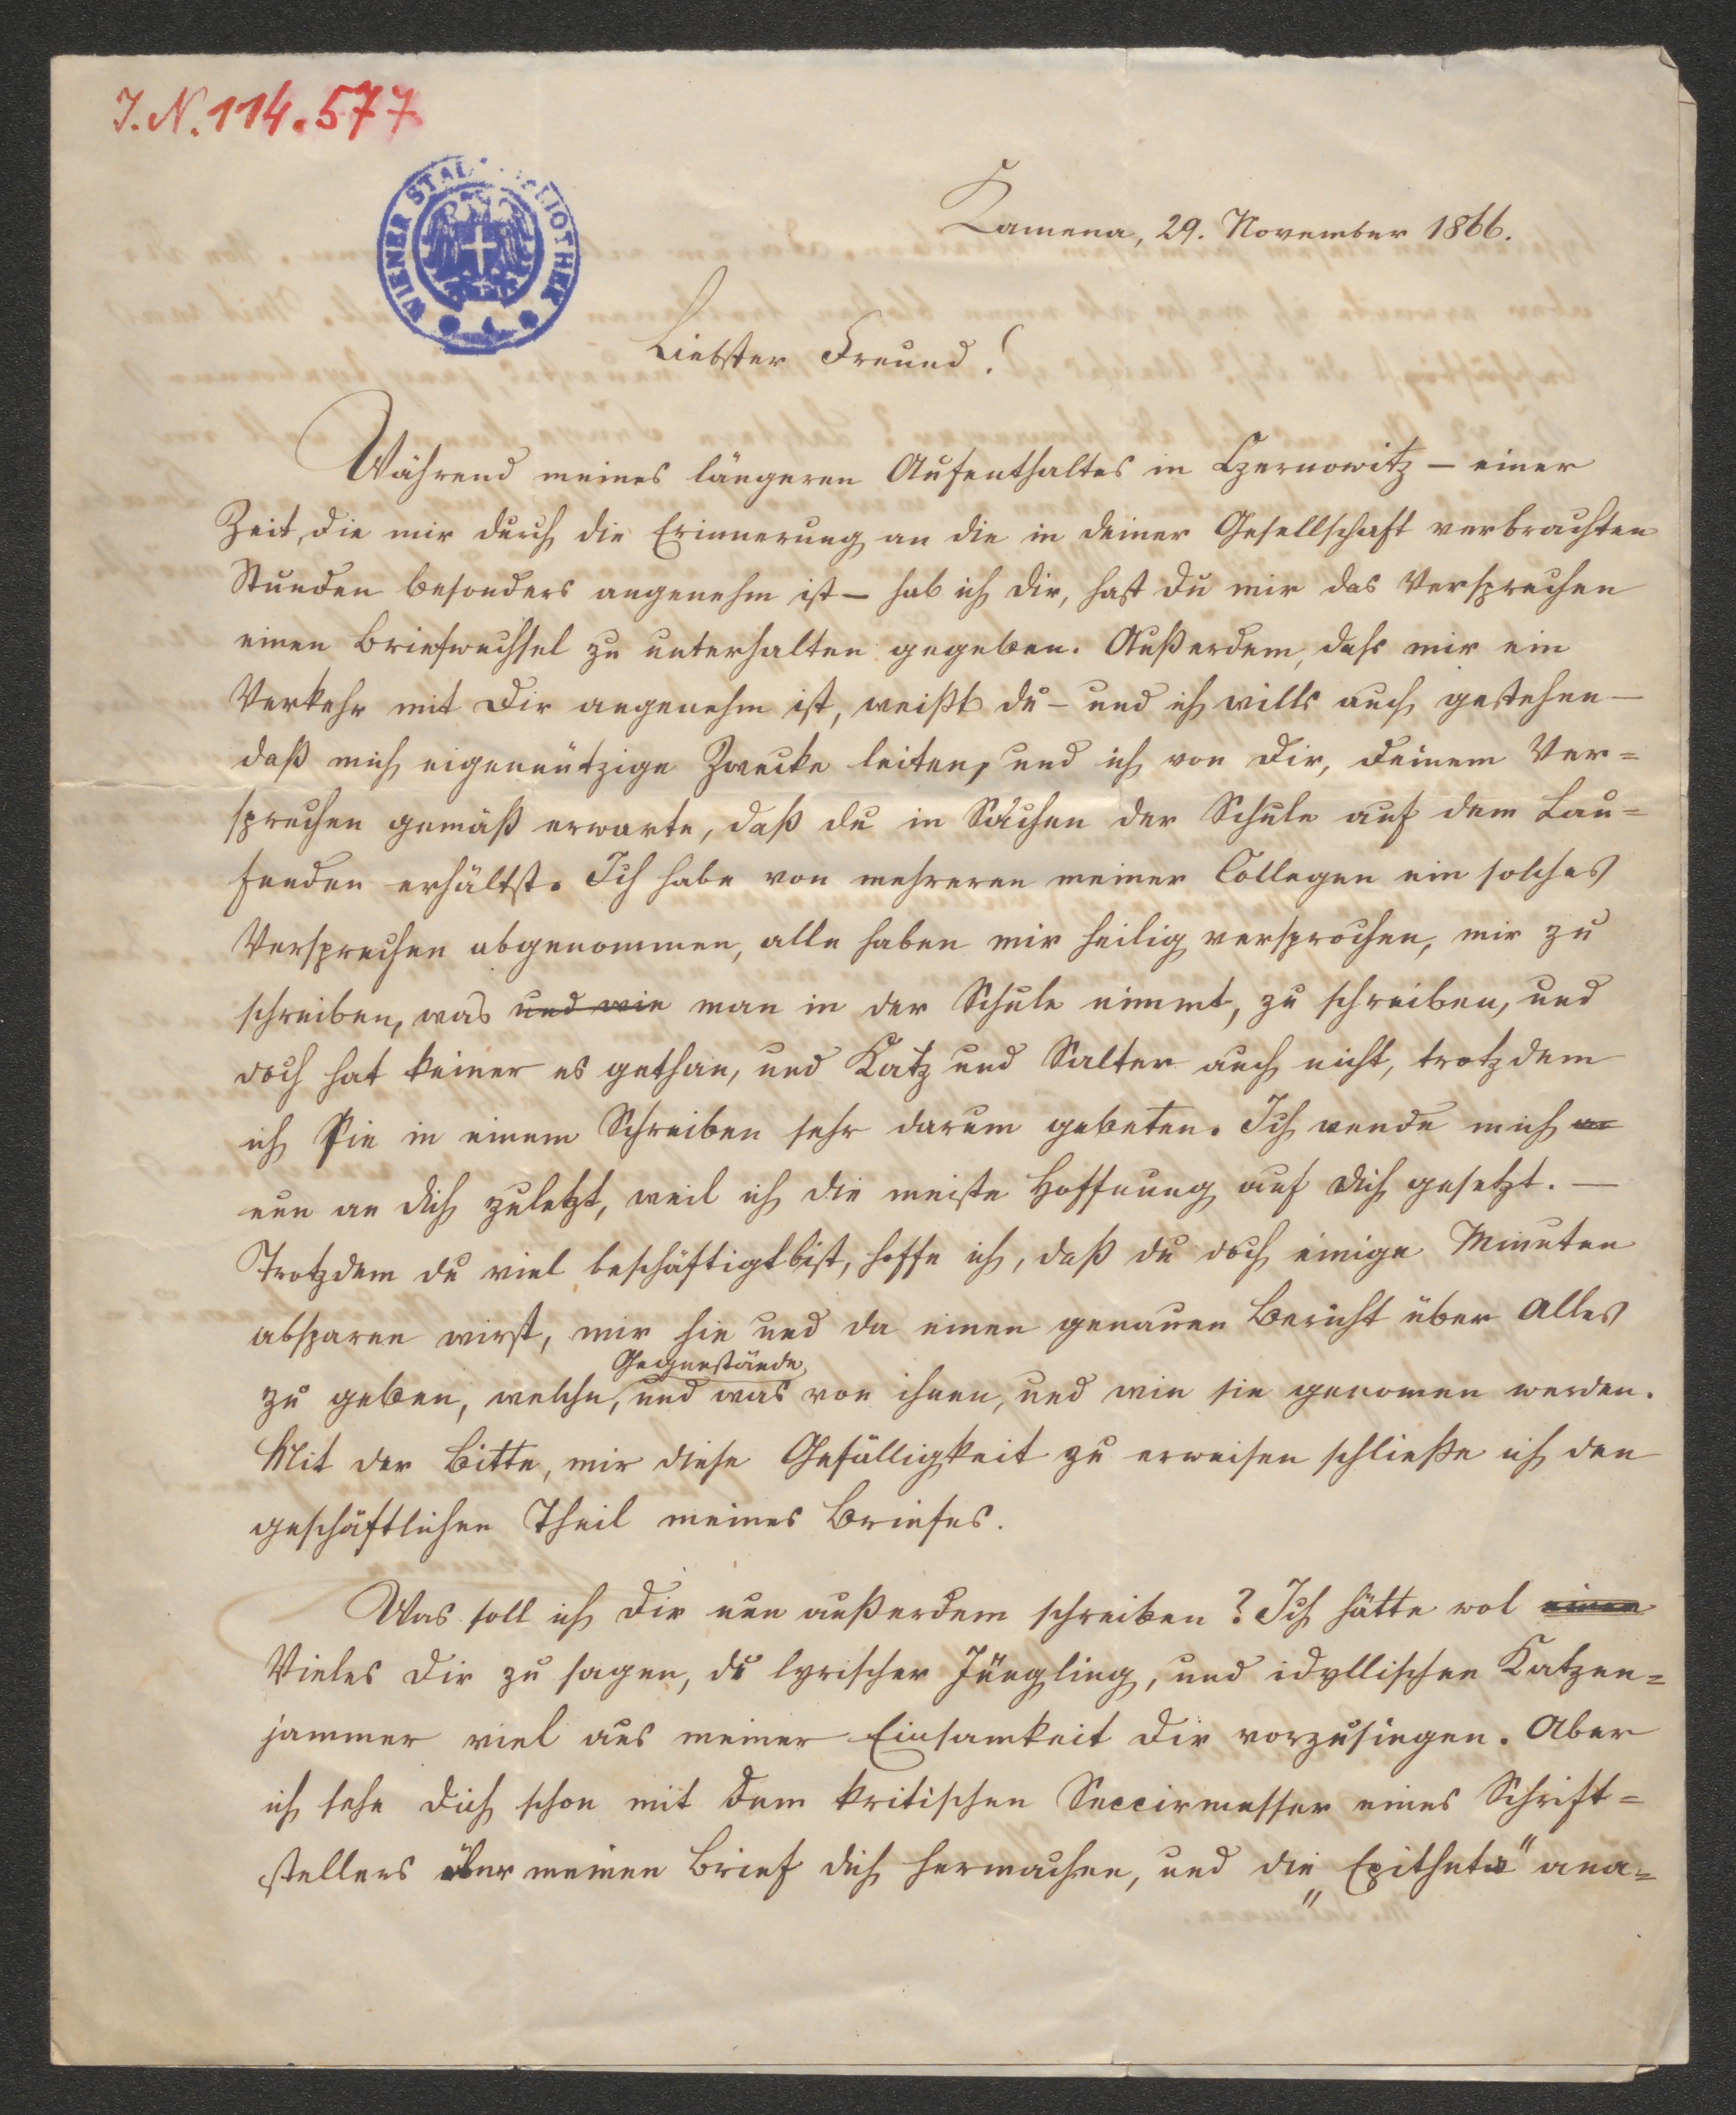 J. N. 114.577
WIENER STADTBIBLIOTHEK
Kamena, 29. November 1866.
Liebster Freund!
Während meines längeren Aufenthaltes in Czernowitz – einer
Zeit, die mir durch die Erinnerung an die in deiner Gesellschaft verbrachten
Stunden besonders angenehm ist – hab ich dir, hast du mir das Versprechen
einen Briefwechsel zu unterhalten gegeben. Außerdem, dass mir ein
Verkehr mit Dir angenehm ist, weißt du – und ich wills auch gestehen –
daß mich eigennützige Zwecke leiten, und ich von Dir, deinem Ver=
sprechen gemäß erwarte, daß du in Sachen der Schule auf dem Lau=
fenden erhältst. Ich habe von mehreren meiner Collegen ein solches
Versprechen abgenommen, alle haben mir heilig versprochen, mir zu
schreiben, was und wie man in der Schule nimmt, zu schreiben, und
doch hat keiner es gethan, und Katz und Salter auch nicht, trotzdem
ich Sie in einem Schreiben sehr darum gebeten. Ich wende mich an
nun an dich zuletzt, weil ich die meiste Hoffnung auf dich gesetzt. –
Trotzdem du viel beschäftigt bist, hoffe ich, daß du doch einige Minuten
absparen wirst, mir hie und da einen genauen Bericht über Alles
Gegenstände
zu geben, welche, und was von ihnen, und wie sie genomen werden.
Mit der Bitte, mir diese Gefälligkeit zu erweisen schließe ich den
geschäftlichen Theil meines Briefes.
Was soll ich Dir nun außerdem schreiben? Ich hätte wol einen
Vieles Dir zu sagen, du lyrischer Jüngling, und idyllischen Katzen=
jammer viel aus meiner Einsamkeit Dir vorzusingen. Aber
ich sehe Dich schon mit dem kritischen Seccirmesser eines Schrift=
stellers über meinen Brief dich hermachen, und die „Epitheta" ana=